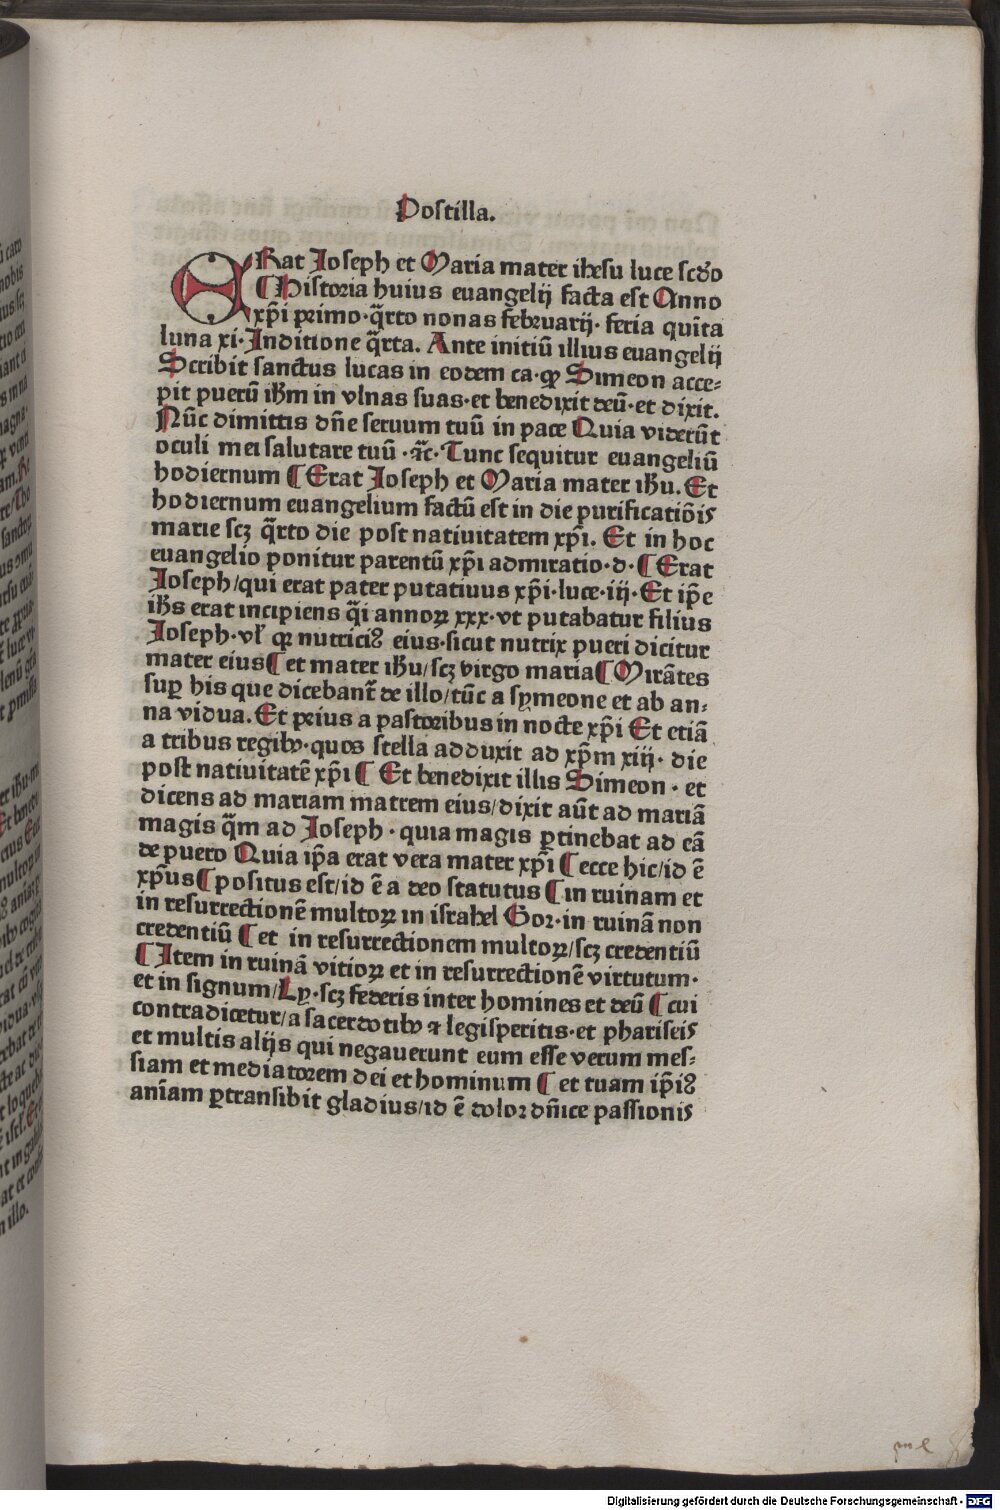 Postilla.
ERat Joseph et Maria mater ihesu luce scdo
¶ Historia huius euangelij facta est Anno
xp̄i primo· q̄rto nonas februarij· feria quīta
luna xi· Inditione q̄rta. Ante initiū illius euangelij
Scribit sanctus lucas in eodem ca· ꝙ Simeon acce⸗
pit puerū ihm̄ in vlnas suas· et benedixit deū· et dixit.
Nūc dimittis dn̄e seruum tuū in pace Quia viderūt
oculi mei salutare tuū · ⁊c̄· Tunc sequitur euangeliū
hodiernum ¶ Erat Joseph et Maria mater ihū. Et
hodiernum euangelium factū est in die purificatiōis
marie scꝫ q̄rto die post natiuitatem xp̄i. Et in hoc
euangelio ponitur parentū xp̄i admiratio· d· ¶ Erat
Joseph/qui erat pater putatiuus xp̄i· luce· iij· Et ip̄e
ihs̄ erat incipiens q̄i annoꝝ xxx· vt putabatur filius
Joseph· vl̄ ꝙ nutriciꝰ eius· sicut nutrix pueri dicitur
mater eius ¶ et mater ihū/scꝫ virgo maria ¶ Mirātes
suꝑ his que dicebant᷑ de illo/tūc a symeone et ab an⸗
na vidua. Et prius a pastoribus in nocte xp̄i Et etiā
a tribus regibꝰ· quos stella adduxit ad xp̄m xiij· die
post natiuitatē xp̄i ¶ Et benedixit illis Simeon · et
dicens ad mariam matrem eius/dixit aūt ad mariā
magis q̄m ad Joseph · quia magis ꝑtinebat ad eā
de puero Quia ip̄a erat vera mater xp̄i ¶ ecce hic/id ē
xp̄us ¶ positus est/id ē a deo statutus ¶ in ruinam et
in resurrectionē multoꝝ in israhel Gor· in ruinā non
credentiū ¶ et in resurrectionem multoꝝ/scꝫ credentiū
¶ Item in ruinā vitioꝝ et in resurrectionē virtutum·
et in signum/Ly· scꝫ federis inter homines et deū ¶ cui
contradicetur/a sacerdotibꝰ ⁊ legisperitis· et phariseis
et multis alijs qui negauerunt eum esse verum mes⸗
siam et mediatorem dei et hominum ¶ et tuam ip̄iꝰ
anīam ꝑtransibit gladius/id ē dolor dn̄ice passionis
Digitalisierung gefördert durch die Deutsche Forschungsgemeinschaft - DFG